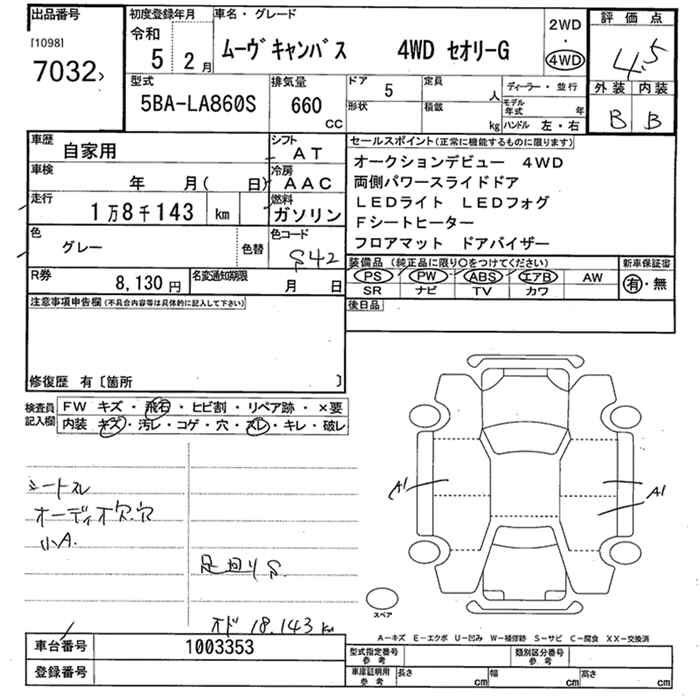 出品番号
[1098]
7032
初度登録年月
令和
5年 2月
車名・グレード
ムーヴキャンバス 4WD セオリーG
2WD
・
4WD
評価点
4.5
外装 内装
B B
型式
5BA-LA860S
排気量
660
CC
ドア
5
形状
定員
人
積載
kg
ディーラー・並行
モデル年式 年
ハンドル 左・右
車歴
自家用
シフト
AT
車検
年 月( 日)
冷房
AAC
走行
1万8千143 km
燃料
ガソリン
色
グレー
色替
色コード
S42
R券
8,130円
名変通知期限
月 日
セールスポイント(正常に機能するものに限ります)
オークションデビュー 4WD
両側パワースライドドア
LEDライト LEDフォグ
Fシートヒーター
フロアマット ドアバイザー
装備品 (純正品に限り○をつけてください)
PS PW ABS エアB AW
SR ナビ TV カワ
新車保証書
有・無
後日品
注意事項申告欄(不具合内容等は具体的に記入して下さい)
修復歴 有〔箇所 〕
検査員記入欄
FW キズ・飛石・ヒビ割・リペア跡・×要
内装 キズ・汚レ・コゲ・穴・スレ・キレ・破レ
シートスレ
オーディオ欠.穴
小A.
足回りS
オド 18.143km
A1
A1
スペア
A-キズ E-エクボ U-凹み W-補修跡 S-サビ C-腐食 XX-交換済
車台番号
1003353
登録番号
型式指定番号
参考
類別区分番号
参考
車庫証明用
参考
長さ cm
幅 cm
高さ cm